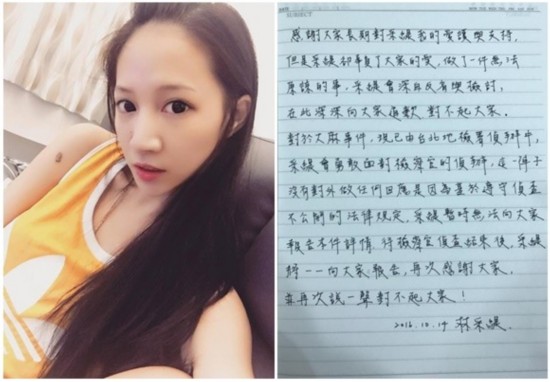 SUBJECT
感謝大家長期對采緹我的愛護與支持,
但是采緹卻辜負了大家的愛,做了一件無法
原諒的事,采緹會深自反省與檢討,
在此深深向大家道歉 對不起大家。
對於大麻事件,現已由台北地檢署偵辦中,
采緹會勇敢面對檢察官的偵辦,這一陣子
沒有對外做任何回應是因為基於遵守偵查
不公開的法律規定,采緹暫時無法向大家
報告案件詳情,待檢察官偵查結束後,采緹
將一一向大家報告,再次感謝大家,
並再次說一聲對不起大家!
2016.10.19 莊采緹